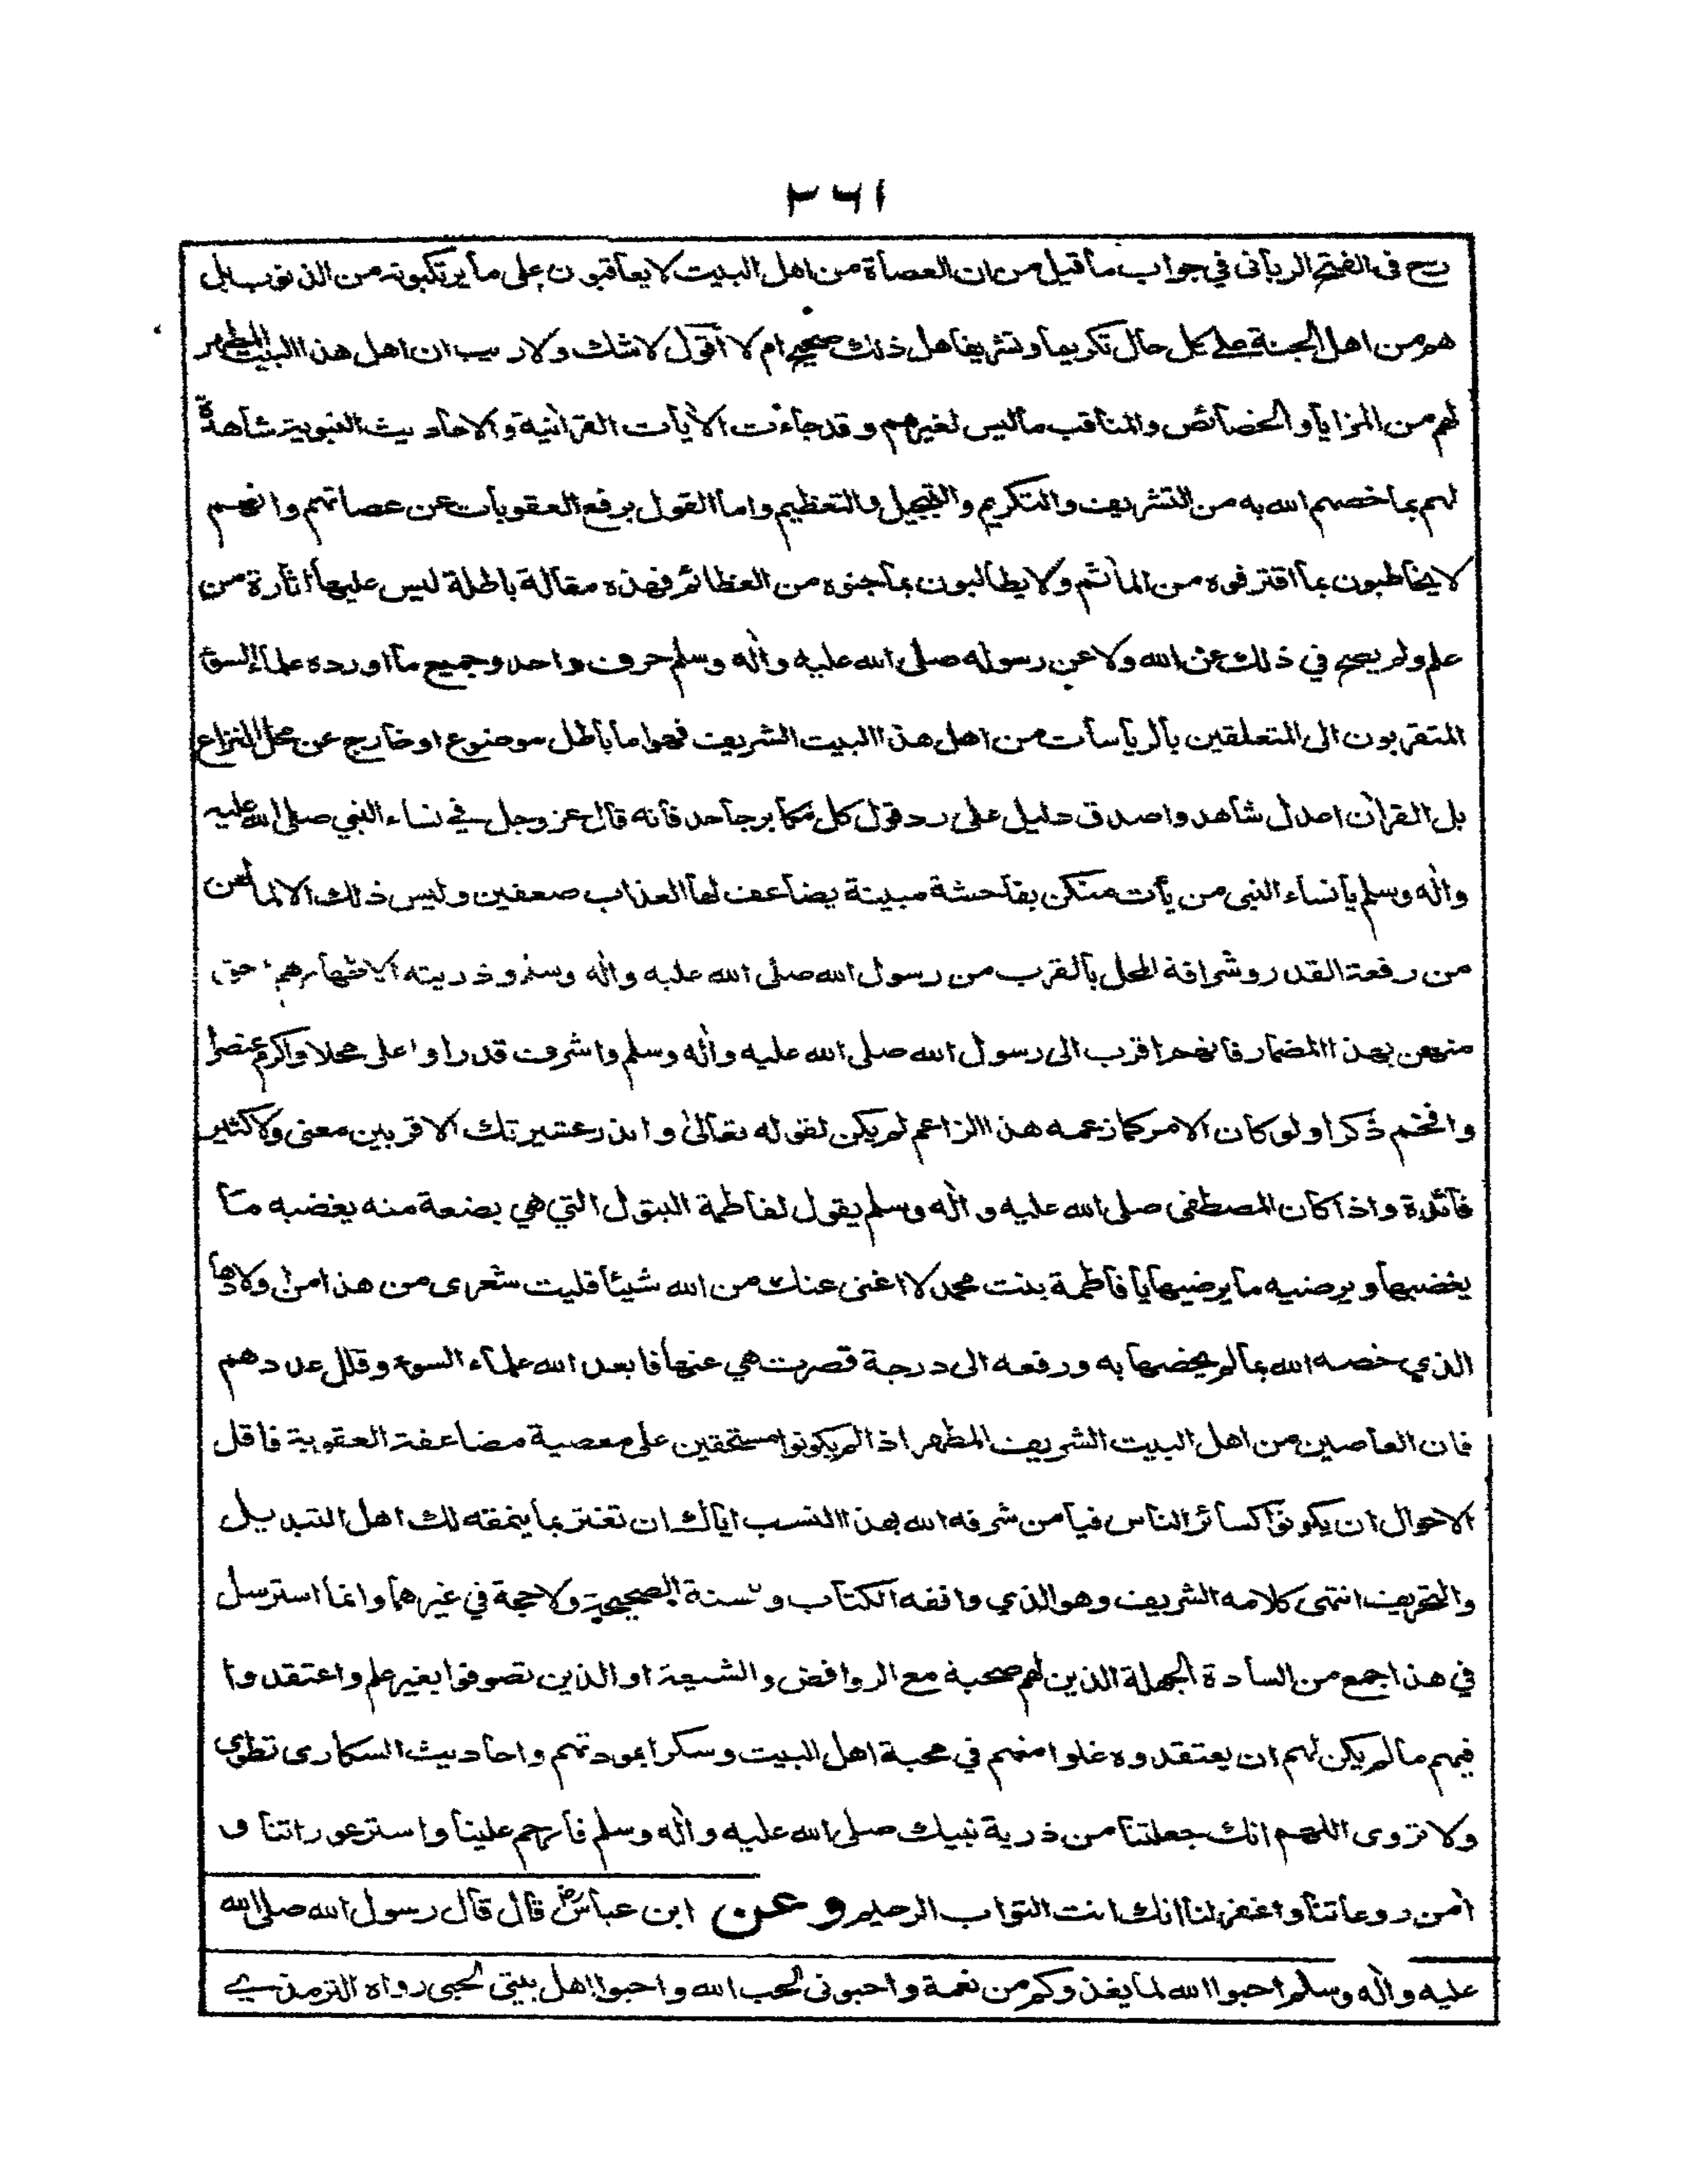 ٢٦١
رح فى الفتح الربانى في جواب ما قيل من ان العصاة من اهل البيت لا يعاقبون على ما يرتكبونه من الذنوب بل
هم من اهل الجنة على كل حال تكريما وتشريفا هل ذلك صحيح ام لا اقول لا شك ولا ريب ان اهل هذا البيت المطهر
لهم من المزايا والخصائص والمناقب ما ليس لغيرهم وقد جاءت الآيات القرآنية والاحاديث النبوية شاهدة
لهم بما خصهم الله به من التشريف والتكريم والتبجيل والتعظيم واما القول برفع العقوبات عن عصاتهم وانهم
لا يخاطبون بما اقترفوه من المأثم ولا يطالبون بما جنوه من العظائم فهذه مقالة باطلة ليس عليها اثارة من
علم ولم يصح في ذلك عن الله ولا عن رسوله صلى الله عليه وآله وسلم حرف واحد وجميع ما اورده علماء السوٓ
المتقربون الى المتعلقين بالرياسات من اهل هذا البيت الشريف فهو اما باطل موضوع او خارج عن محل النزاع
بل القرآن اعدل شاهد واصدق دليل على رد قول كل مكابر جاحد فانه قال عز وجل في نساء النبي صلى الله عليه
وآله وسلم يا نساء النبى من يأت منكن بفاحشة مبينة يضاعف لها العذاب ضعفين وليس ذلك الا لما لهن
من رفعة القدر وشرافة المحل بالقرب من رسول الله صلى الله عليه وآله وسلم وذريته الاطهار هم احق
منهن بهذا المضمار فانهم اقرب الى رسول الله صلى الله عليه وآله وسلم واشرف قدرا واعلى محلا واكرم عنصرا
وافخم ذكرا ولو كان الامر كما زعمه هذا الزاعم لم يكن لقوله تعالى وانذر عشيرتك الاقربين معنى ولا كثير
فائدة واذا كان المصطفى صلى الله عليه وآله وسلم يقول لفاطمة البتول التي هي بضعة منه يغضبه ما
يغضبها ويرضيه ما يرضيها يا فاطمة بنت محمد لا اغنى عنك من الله شيئا فليت شعرى من هذا من اولادها
الذي خصه الله بما لم يخصها به ورفعه الى درجة قصرت هي عنها فابعد الله علماء السوء وقلل عددهم
فان العاصين من اهل البيت الشريف المطهر اذا لم يكونوا مستحقين على معصية مضاعفة العقوبة فاقل
الاحوال ان يكونوا كسائر الناس فيا من شرفه الله بهذا النسب اياك ان تغتر بما ينمقه لك اهل التبديل
والتحريف انتهى كلامه الشريف وهو الذي وافقه الكتاب والسنة الصحيحة ولا حجة في غيرهما وانما استرسل
في هذا جمع من السادة الجهلة الذين لهم صحبة مع الروافض والشيعة او الذين تصوفوا بغير علم واعتقدوا
فيهم ما لم يكن لهم ان يعتقدوه غلوا منهم في محبة اهل البيت وسكرا بمودتهم واحاديث السكارى تطوى
ولا تروى اللهم انك جعلتنا من ذرية نبيك صلى الله عليه وآله وسلم فارحم علينا واستر عوراتنا و
آمن روعاتنا واغفر لنا انك انت التواب الرحيم وعن ابن عباس رض قال قال رسول الله صلى الله
عليه وآله وسلم احبوا الله لما يغذوكم من نعمة واحبونى لحب الله واحبوا اهل بيتى لحبى رواه الترمذي